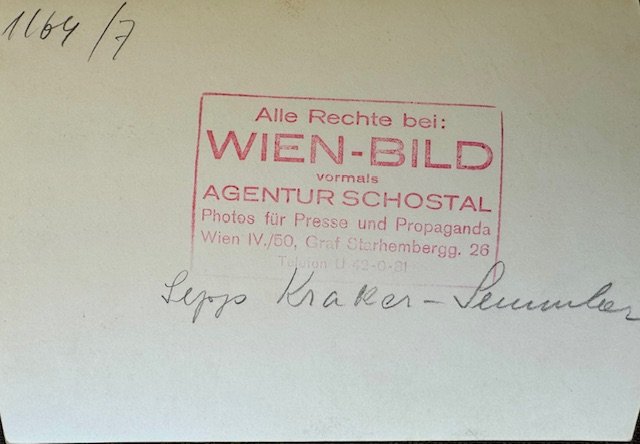 1164/7
Alle Rechte bei:
WIEN-BILD
vormals
AGENTUR SCHOSTAL
Photos für Presse und Propaganda
Wien IV./50, Graf Starhembergg. 26
Telefon U 42-0-81
Sepp Kraker-